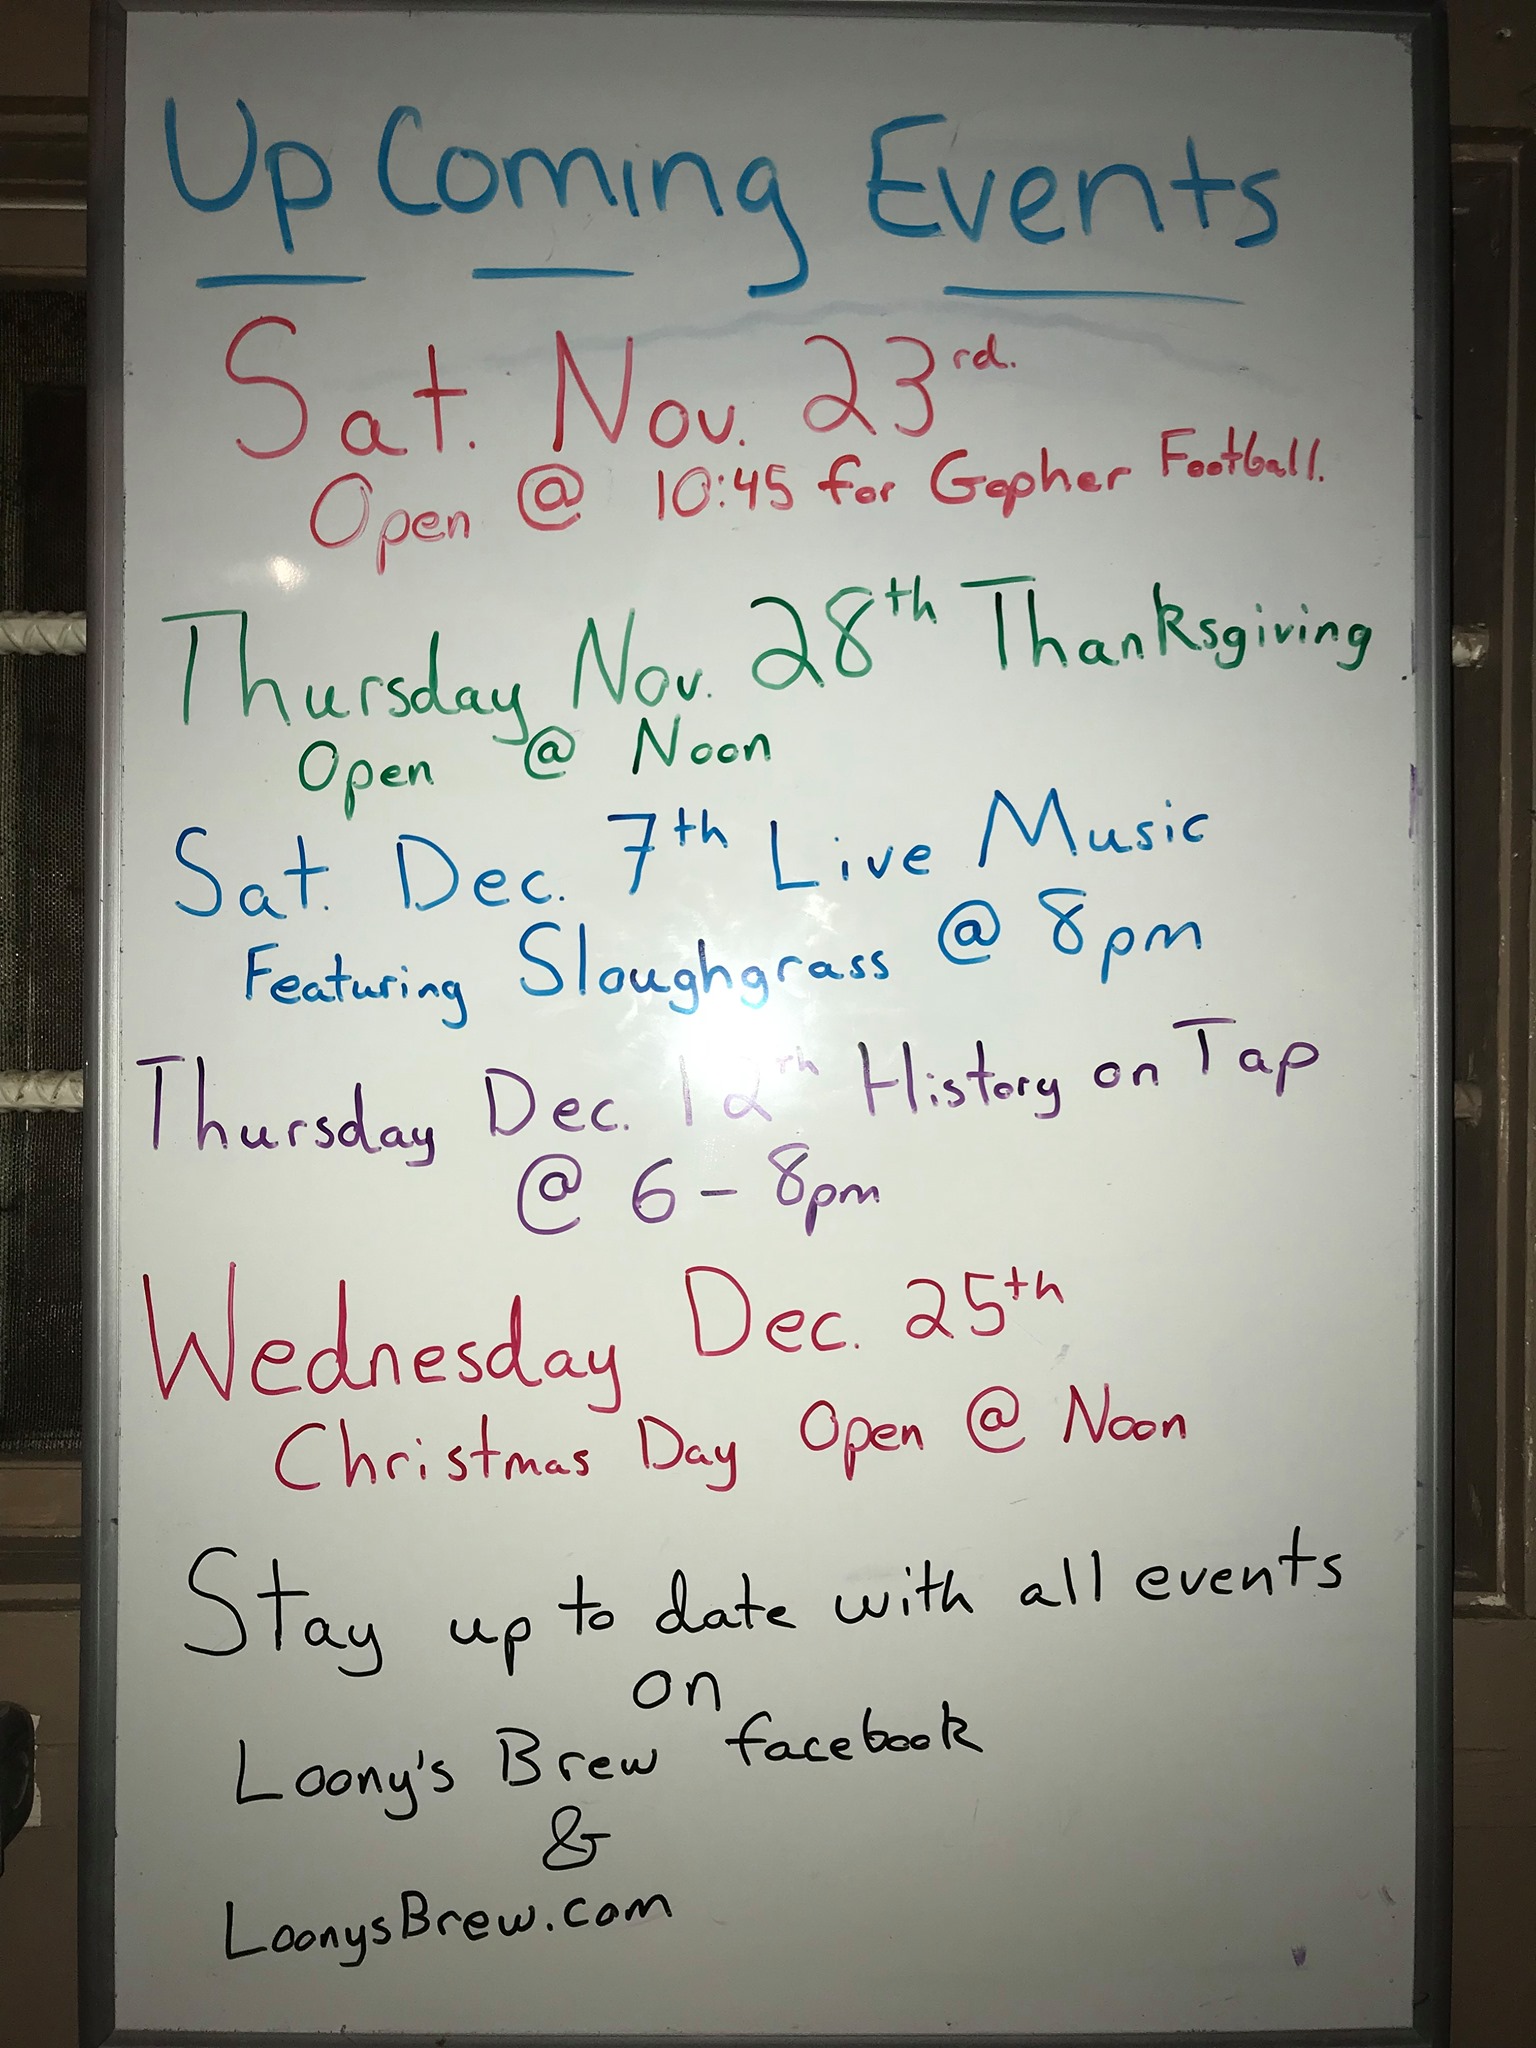 Up Coming Events
Sat. Nov. 23rd.
Open @ 10:45 for Gopher Football.
Thursday Nov. 28th Thanksgiving
Open @ Noon
Sat. Dec. 7th Live Music
Featuring Sloughgrass @ 8pm
Thursday Dec. 12th History on Tap
@ 6 - 8pm
Wednesday Dec. 25th
Christmas Day Open @ Noon
Stay up to date with all events
on
Loony's Brew facebook
&
LoonysBrew.com